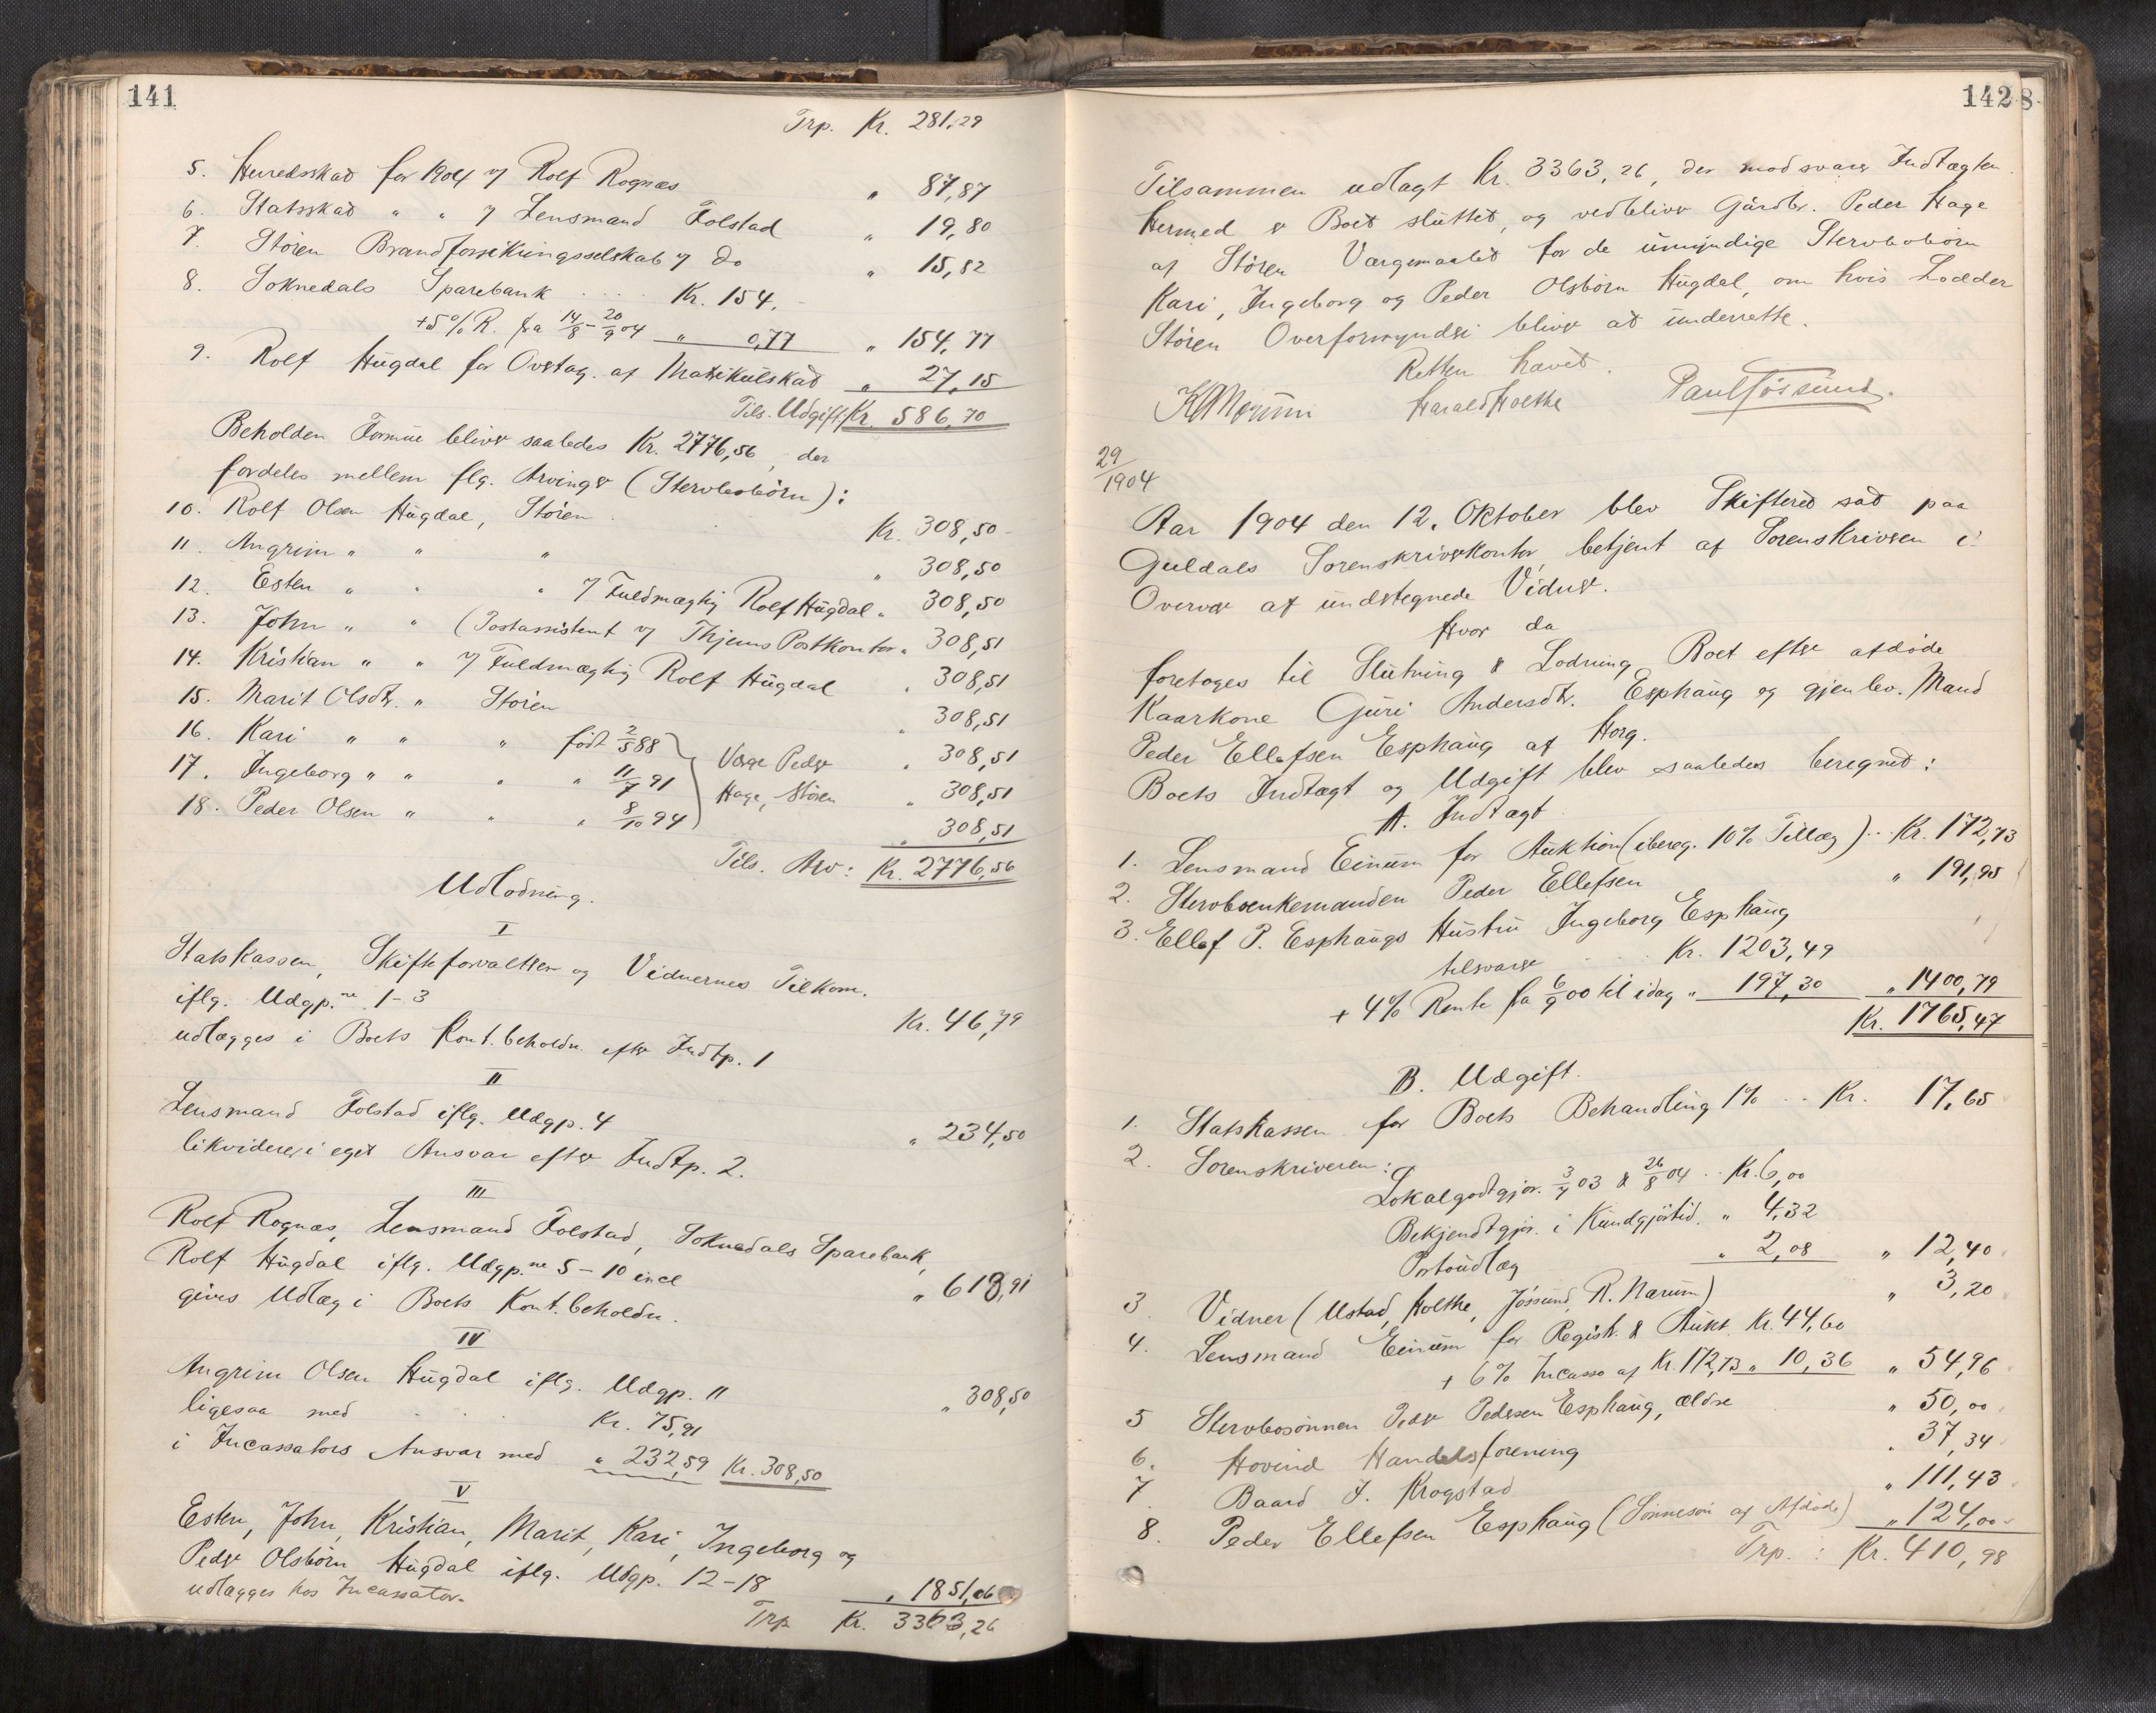 141
Trp. Kr. 281,29
5. Herredsskat for 1904 v/ Rolf Rognæs " 87,87
6. Statsskat " " v/ Lensmand Folstad " 19,80
7. Støren Brandforsikringsselskab v/ do " 15,82
8. Soknedals Sparebank .... Kr. 154,-
+ 5% R. fra 14/8 - 20/9 04 " 0,77 " 154,77
9. Rolf Hugdal for Overtag. af Matrikulskat " 27,15
Tils. Udgift: Kr. 586,70
Beholden Formue bliver saaledes Kr. 2776,56, der
fordeles mellem flg. Arvinger (Stervbobörn):
10. Rolf Olsen Hugdal, Støren Kr. 308,50
11. Angrim " " " " 308,50
12. Esten " " " v/ Fuldmægtig Rolf Hugdal " 308,50
13. John " " (Postassistent v/ Thjems Postkontor " 308,51
14. Kristian " " v/ Fuldmægtig Rolf Hugdal " 308,51
15. Marit Olsdtr. " Støren " 308,51
16. Kari " " " født 2/5 88 } Værge Peder " 308,51
17. Ingeborg " " " " 11/7 91 } Hage, Støren " 308,51
18. Peder Olsen " " " 8/10 94 } " 308,51
Tils. Arv: Kr. 2776,56
Udlodning.
I
Statskassen, Skifteforvalteren og Vidnernes Tilkom.
iflg. Udgp.ne 1-3 Kr. 46,79
udlægges i Boets Kont. beholdn. efter Indtp. 1
II
Lensmand Folstad iflg. Udgp. 4 " 234,50
likviderer i eget Ansvar efter Indtp. 2.
III
Rolf Rognæs, Lensmand Folstad, Soknedals Sparebank,
Rolf Hugdal iflg. Udgp.ne 5-10 incl " 613,91
gives Udlæg i Boets Kont. beholdn.
IV
Angrim Olsen Hugdal iflg. Udgp. 11 " 308,50
ligesaa med ... Kr. 75,91
i Incassators Ansvar med " 232,59 Kr. 308,50
V
Esten, John, Kristian, Marit, Kari, Ingeborg og
Peder Olsbörn Hugdal iflg. Udgp. 12-18
udlægges hos Incassator. " 1851,06
Trp Kr. 3363,26
142
Tilsammen udlagt Kr. 3363,26, der modsvarer Indtægten.
Hermed er Boet sluttet, og vedbliver Gårdbr. Peder Hage
af Støren Værgemaalet for de umyndige Stervbobörn
Kari, Ingeborg og Peder Olsbörn Hugdal, om hvis Lodder
Støren Overformynderi bliver at underrette.
Retten hævet.
Harald Holthe Paul Jössund.
29/1904
Aar 1904 den 12. Oktober blev Skifteret sat paa
Guldals Sorenskriverkontor, betjent af Sorenskriveren i
Overvær af undertegnede Vidner.
Hvor da
foretoges til Slutning & Lodning Boet efter afdøde
Kaarkone Guri Andersdtr. Esphaug og gjenlev. Mand
Peder Ellefsen Esphaug af Horg.
Boets Indtægt og Udgift blev saaledes beregnet:
A. Indtægt
1. Lensmand Einum for Auktion (ibereg. 10% Tillæg) .. Kr. 172,73
2. Stervboenkemanden Peder Ellefsen " 191,95
3. Ellef P. Esphaugs Hustru Ingeborg Esphaug
tilsvarer ... Kr. 1203,49
+ 4% Rente fra 6/9 00 til idag " 197,30 " 1400,79
Kr. 1765,47
B. Udgift.
1. Statskassen for Boets Behandling 1% .. Kr. 17,65
2. Sorenskriveren:
Lokalgodtgjør. 3/7 03 & 26/8 04 .. Kr. 6,00
Bekjendtgjør. i Kundgjørtid. " 4,32
Portoudlæg " 2,08 " 12,40
3 Vidner (Ustad, Holthe, Jössund, R. Narum) " 3,20
4. Lensmand Einum for Registr. & Aukt. Kr. 44,60
+ 6% Incasso af Kr. 172,73 " 10,36 " 54,96
5 Stervbosönnen Peder Pedersen Esphaug, ældre " 50,00
6. Hovind Handelsforening " 37,34
7. Baard J. Krogstad " 111,43
8. Peder Ellefsen Esphaug (Sönnesön af Afdøde) " 124,00
Trp.: Kr. 410,98